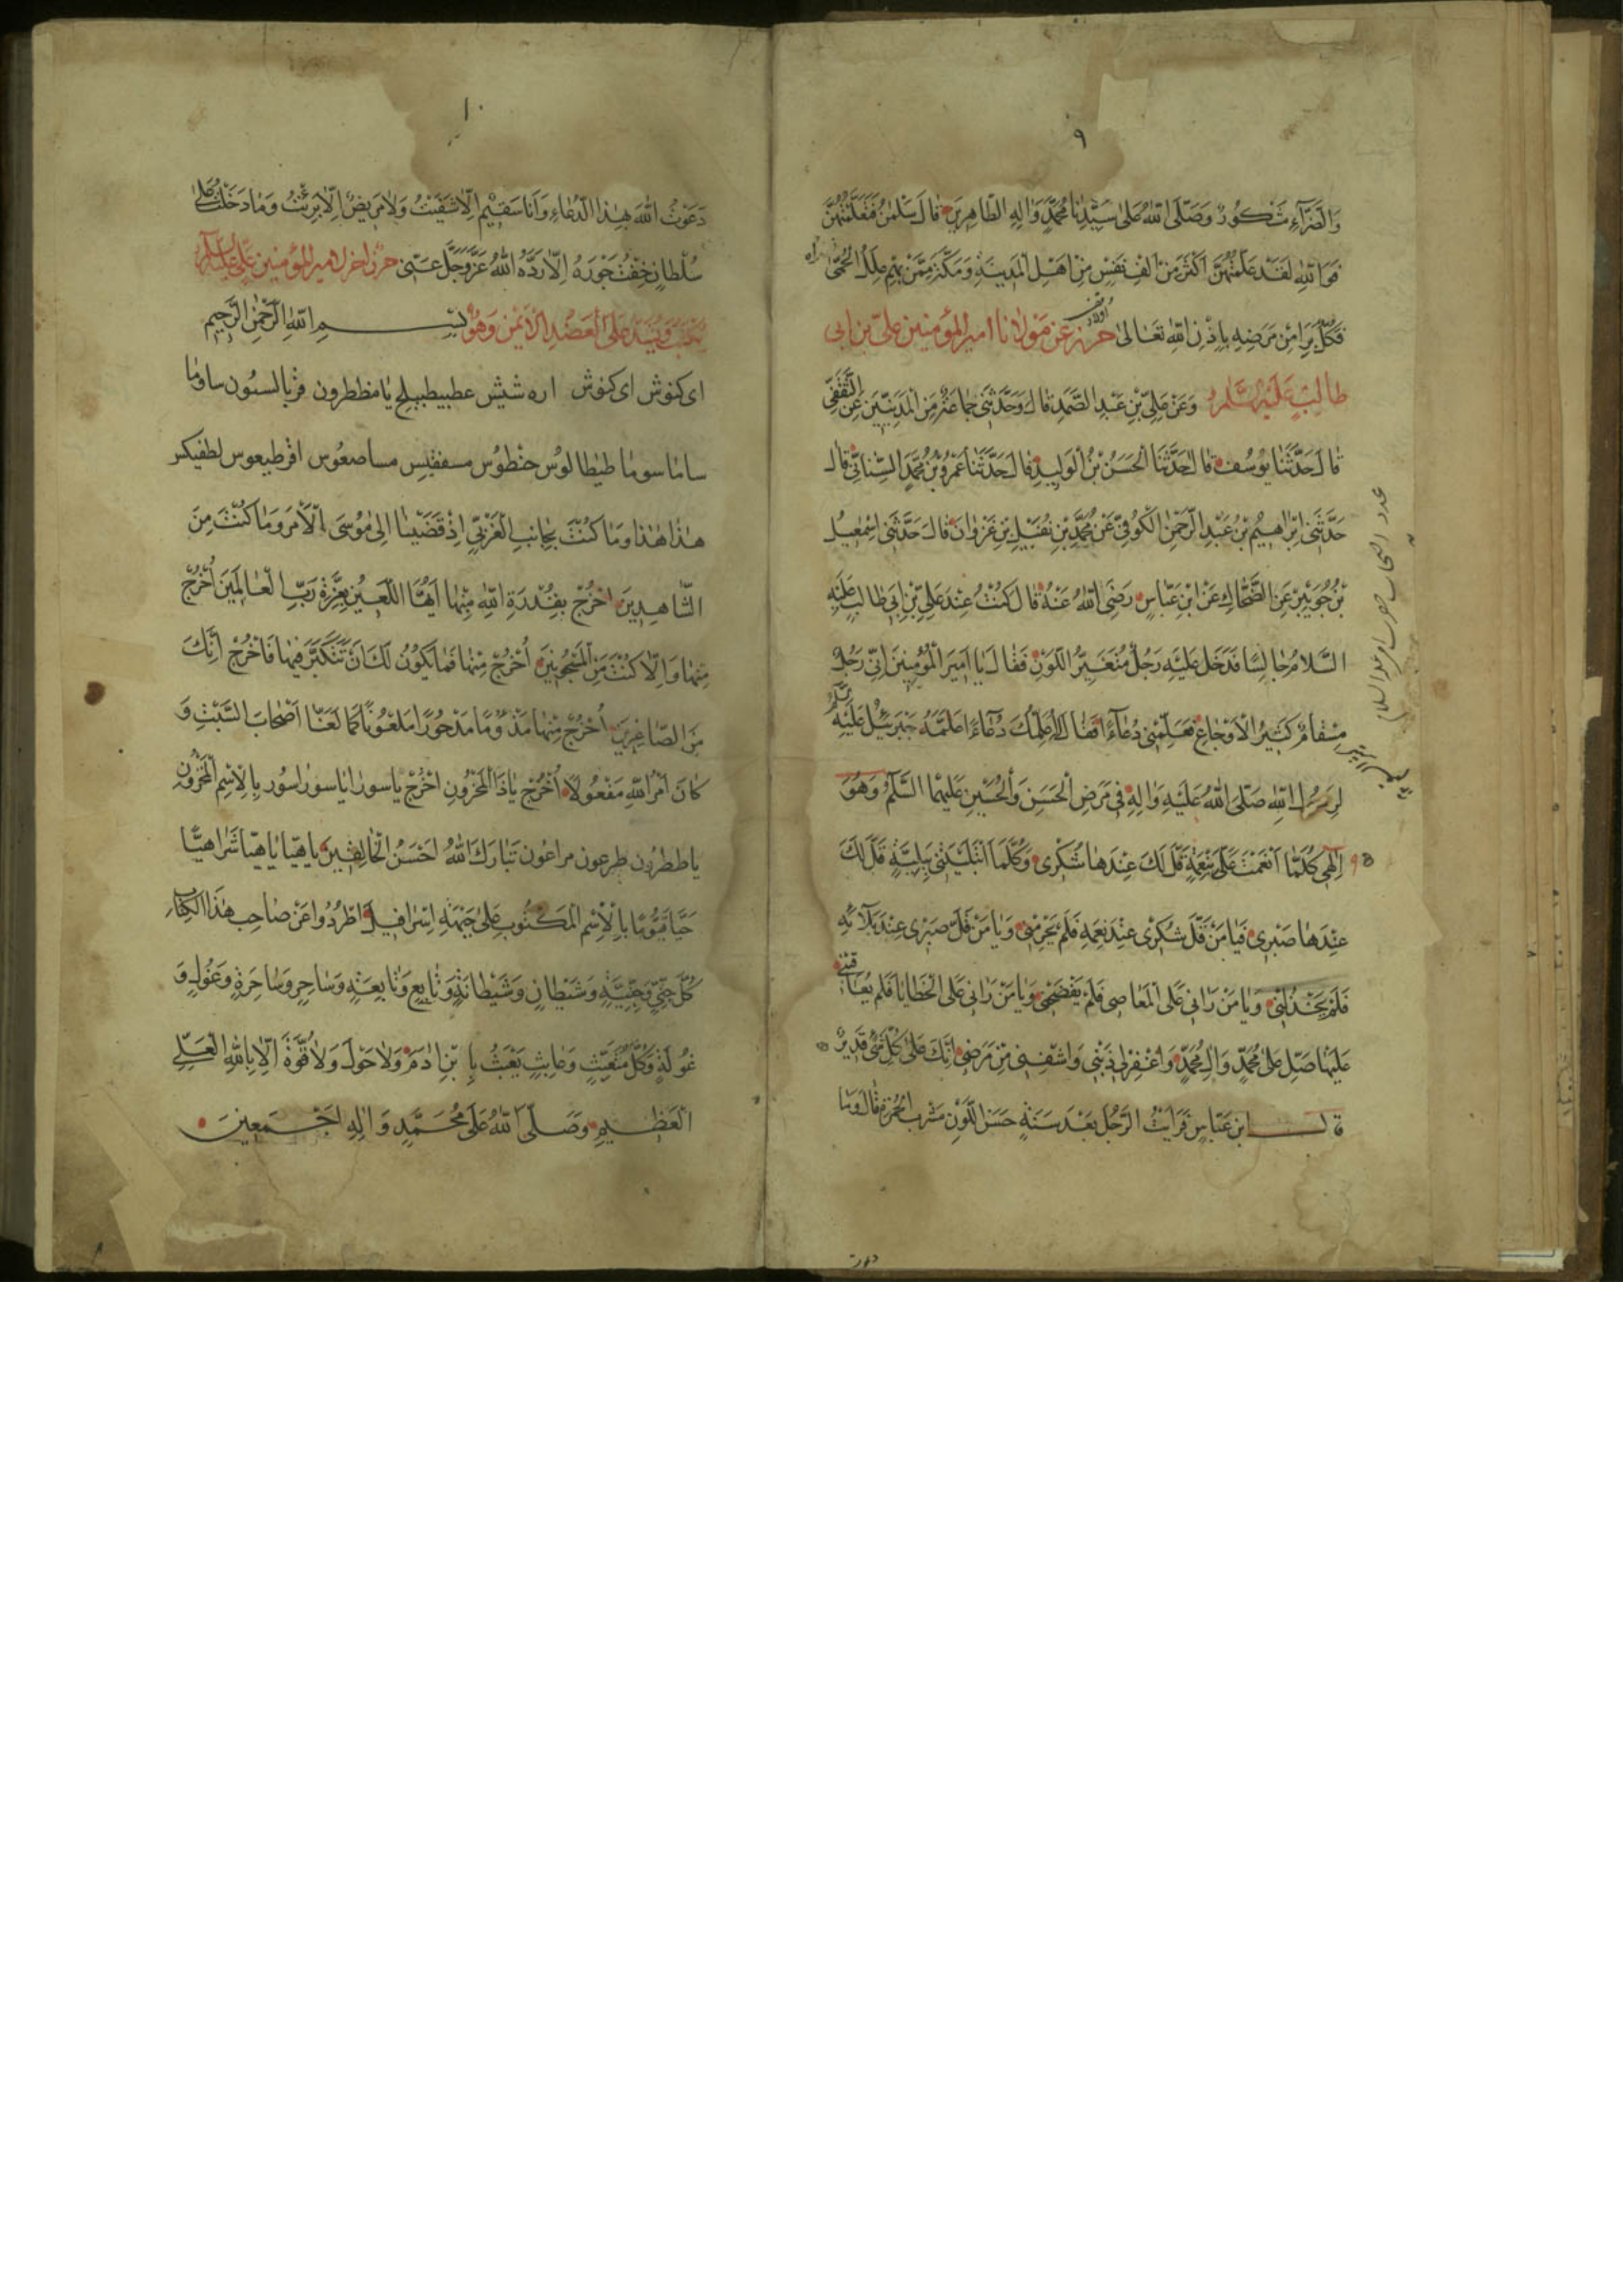 ٩
وَالضَّرَّآءِ مَشْكُورٌ وَصَلَّى اللّٰهُ عَلىٰ سَيِّدِنَا مُحَمَّدٍ وَاٰلِهِ الطَّاهِرِينَ قالَ سَلْمٰنُ فَتَعَلَّمْتُهُنَّ
فَوَاللّٰهِ لَقَدْ عَلَّمْتُهُنَّ اَكْثَرَ مِنْ اَلْفِ نَفْسٍ مِنْ اَهْلِ الْمَدِينَةِ وَمَكَّةَ مِمَّنْ بِهِمْ عِلَلُ الْحُمّى
فَكُلٌّ بَرَاَ مِنْ مَرَضِهِ بِاِذْنِ اللّٰهِ تَعَالىٰ حرز عَن مَوْلانَا امير المؤمنين علىّ بن ابى
طالبٍ عَلَيْهِ السَّلامُ وَعَنْ عَلِىِّ بْنِ عَبْدِ الصَّمَدِ قالَ وَحَدَّثَنِى جَماعَةٌ مِنَ الْمَدَنِيِّينَ عَنِ الثَّقَفِىّ
قالَ حَدَّثَنا يُوسُفُ قالَ حَدَّثَنَا الْحَسَنُ بْنُ الْوَلِيدِ قالَ حَدَّثَنا عَمْرُو بْنُ مُحَمَّدٍ السِّنانِىّ قالَ
حَدَّثَنِى اِبْراهِيمُ بْنُ عَبْدِ الرَّحْمٰنِ الْكُوفِىُّ عَنْ مُحَمَّدِ بْنِ فُضَيْلِ بْنِ غَزْوانَ قالَ حَدَّثَنِى اِسْمٰعِيلُ
بْنُ جُوَيْبِرٍ عَنِ الضَّحّاكِ عَنْ ابْنِ عَبّاسٍ رَضِىَ اللّٰهُ عَنْهُ قالَ كُنْتُ عِنْدَ عَلِىِّ بْنِ اَبِى طالِبٍ عَلَيْهِ
السَّلامُ جالِسًا فَدَخَلَ عَلَيْهِ رَجُلٌ مُتَغَيِّرُ اللَّوْنِ فَقالَ يا اَمِيرَ الْمُؤْمِنِينَ اِنِّى رَجُلٌ
مِسْقامٌ كَثِيرُ الْاَوْجاعِ فَعَلِّمْنِى دُعآءً فَقالَ اُعَلِّمُكَ دُعآءً عَلَّمَهُ جَبْرَئِيلُ عَلَيْهِ
لِرَسُولِ اللّٰهِ صَلَّى اللّٰهُ عَلَيْهِ وَاٰلِهِ فِى مَرَضِ الْحَسَنِ وَالْحُسَيْنِ عَلَيْهِمَا السَّلَمُ وَهُوَ
اِلٰهِى كُلَّمٰا اَنْعَمْتَ عَلَىَّ نِعْمَةً قَلَّ لَكَ عِنْدَهٰا شُكْرِى وَكُلَّمَا ابْتَلَيْتَنِى بِبَلِيَّةٍ قَلَّ لَكَ
عِنْدَهٰا صَبْرِى فَيٰا مَنْ قَلَّ شُكْرِى عِنْدَ نِعَمِهِ فَلَمْ يَحْرِمْنِى وَيٰا مَنْ قَلَّ صَبْرِى عِنْدَ بَلآئِهِ
فَلَمْ يَخْذُلْنِى وَيٰا مَنْ رَاٰنِى عَلَى الْمَعٰاصِى فَلَمْ يَفْضَحْنِى وَيٰا مَنْ رَاٰنِى عَلَى الْخَطٰايٰا فَلَمْ يُعٰاقِبْنِى
عَلَيْهٰا صَلِّ عَلىٰ مُحَمَّدٍ وَاٰلِ مُحَمَّدٍ وَاغْفِرْ لِى ذَنْبِى وَاشْفِنِى مِنْ مَرَضِى اِنَّكَ عَلىٰ كُلِّ شَىْءٍ قَدِيرٌ
قالَ ابن عَبّاسٍ فَرَاَيْتُ الرَّجُلَ بَعْدَ سَنَةٍ حَسَنَ اللَّوْنِ مُشْرَبَ الْحُمْرَةِ قالَ وَمٰا
١٠
دَعَوْتُ اللّٰهَ بِهٰذَا الدُّعٰاءِ وَاَنَا سَقِيمٌ اِلّا شُفِيتُ وَلا مَرِيضٌ اِلّا بَرِئْتُ وَمٰا دَخَلْتُ عَلىٰ
سُلْطانٍ خِفْتُ جَوْرَهُ اِلّا رَدَّهُ اللّٰهُ عَزَّ وَجَلَّ عَنّى حرز اخر لامير المؤمنين على عليه السلام
يُكْتَبُ وَيُشَدُّ عَلَى الْعَضُدِ الْاَيْمَنِ وَهُوَ بِسْمِ اللّٰهِ الرَّحْمٰنِ الرَّحِيمِ
اى كنوش اى كنوش اره شيش عطبيطبيلج يٰا مططرون قربالسئون ساوما
سٰامٰا سومٰا طيطا لوُس حنْطوُس مسفقليس مساصعوُس اقرطيعوس لطفيكس
هٰذٰا هٰذٰا وَمٰا كُنْتَ بِجٰانِبِ الْغَرْبِىِّ اِذْ قَضَيْنٰا اِلىٰ مُوسَى الْاَمْرَ وَمٰا كُنْتَ مِنَ
الشّٰاهِدِينَ اُخْرُجْ بِقُدْرَةِ اللّٰهِ مِنْهٰا اَيُّهَا اللَّعِينُ بِعِزَّةِ رَبِّ الْعٰالَمِينَ اُخْرُجْ
مِنْهٰا وَاِلّا كُنْتَ مِنَ الْمَسْجُونِينَ اُخْرُجْ مِنْهٰا فَمٰا يَكُونُ لَكَ اَنْ تَتَكَبَّرَ فِيهٰا فَاخْرُجْ اِنَّكَ
مِنَ الصّٰاغِرِينَ اُخْرُجْ مِنْهٰا مَذْؤُمًا مَدْحُورًا مَلْعُونًا كَمٰا لَعَنّٰا اَصْحٰابَ السَّبْتِ وَ
كٰانَ اَمْرُ اللّٰهِ مَفْعُولًا اُخْرُجْ يٰا ذَا الْمَخْزُونِ اُخْرُجْ يٰا سورٰا يٰا سورٰاسُور بِالْاِسْمِ الْمَخْزُونِ
يٰا ططرُون طرعون مراعُون تَبٰارَكَ اللّٰهُ اَحْسَنُ الْخٰالِقِينَ يٰا هِيّا يٰا هِيّا شَرٰاهِيّا
حَيًّا قَيُّومًا بِالْاِسْمِ الْمَكْتُوبِ عَلىٰ جَبْهَةِ اِسْرٰافِيلَ اُطْرُدُوا عَنْ صٰاحِبِ هٰذَا الْكِتٰابِ
كُلَّ جِنِّىٍّ وَجِنِّيَّةٍ وَشَيْطٰانٍ وَشَيْطٰانَةٍ وَتٰابِعٍ وَتٰابِعَةٍ وَسٰاحِرٍ وَسٰاحِرَةٍ وَغُولٍ وَ
غُولَةٍ وَكُلَّ مُتَعَبِّثٍ وَعٰابِثٍ يَعْبَثُ بِابْنِ اٰدَمَ وَلاٰ حَوْلَ وَلاٰ قُوَّةَ اِلّا بِاللّٰهِ الْعَلِىِّ
الْعَظِيمِ وَصَلَّى اللّٰهُ عَلىٰ مُحَمَّدٍ وَاٰلِهِ اَجْمَعِينَ